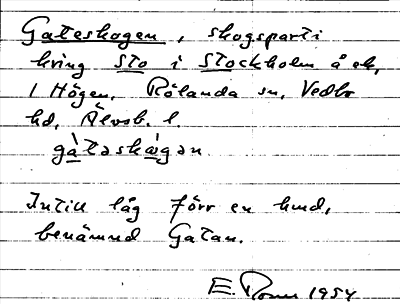 Gateskogen, skogsparti
kring Sto i Stockholm å ek,
1 Högen, Rölanda sn, Vedbo
hd, Älvsb. l.
gàtaskògan.
Intill låg förr en lund,
benämnd Gatan.
E. 1954